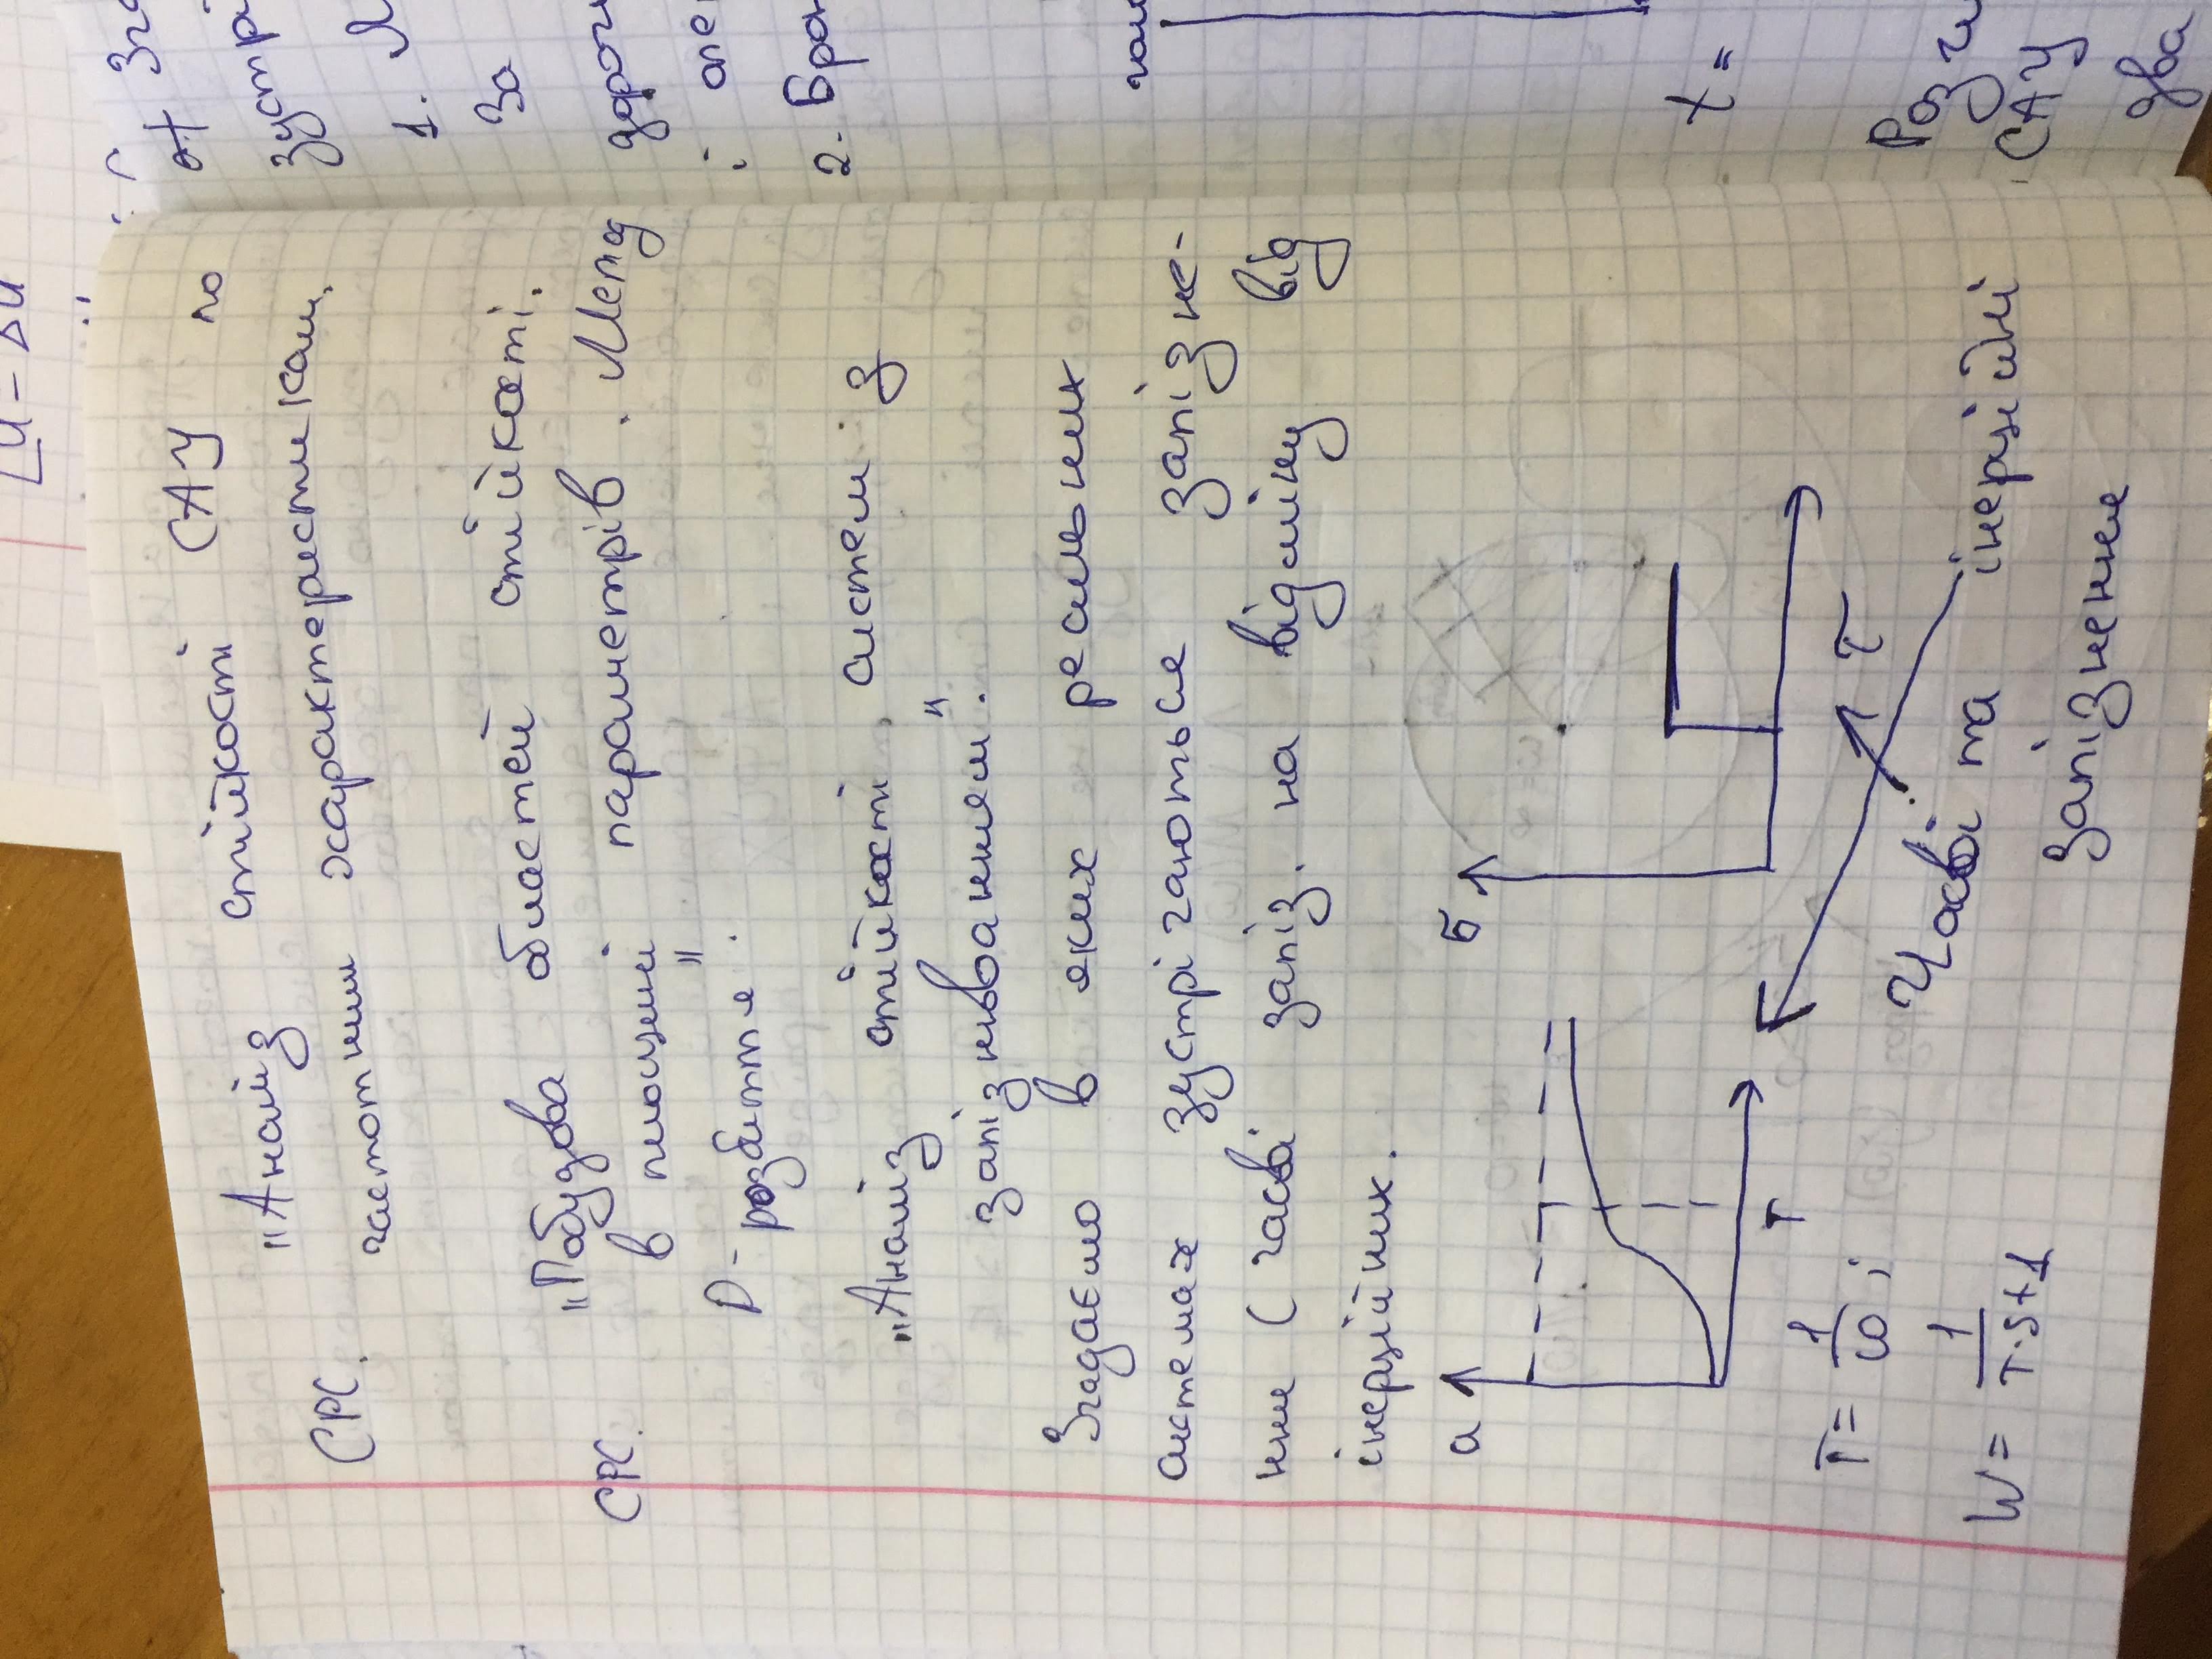 „Аналіз стійкості САУ по
СРС. частотним характеристикам.
„Побудова областей стійкості.
СРС. в площині параметрів. Метод
D-розбиття".
„Аналіз стійкості систем з
запізнюванням".
Згадаємо в яких реальних
системах зустрічаються запізне-
ння (часові запіз. на відміну від
інерційних.
а
б
T
T = 1/ω;
τ
W = 1/T·s+1
Часові та інерційні
запізнення
от
зустрі
1.
За
дорог
і
2. Брон
t =
Роз
САУ
два